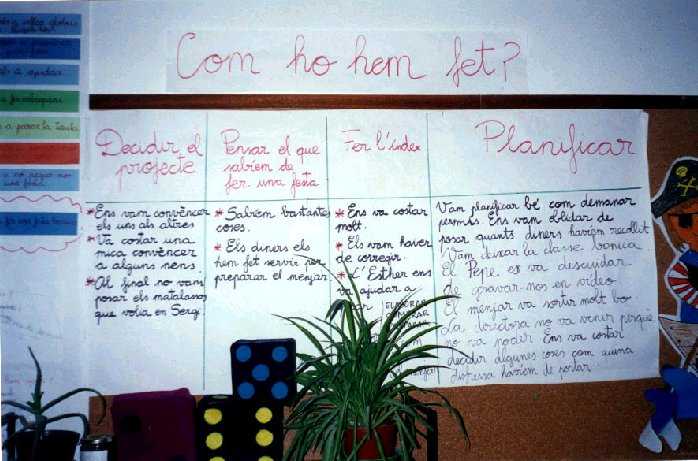 Com ho hem fet?
Decidir el
projecte
Pensar el que
sabíem de
fer una festa
Fer l'índex
Planificar
* Ens vam convèncer
els uns als altres
* Va costar una
mica convèncer
a alguns nens.
* Al final no vam
posar els matalassos
que volia en Sergi
* Sabíem bastantes
coses.
* Els diners els
hem fet servir per
preparar el menjar.
* Ens va costar
molt.
* Els vam haver
de corregir.
* L'Esther ens
va ajudar a
Vam planificar bé com demanar
permís. Ens vam oblidar de
posar quants diners havíem recollit
Vam deixar la classe bonica
El Pepe es va descuidar
de gravar-nos en vídeo
El menjar va sortir molt bo
La directora no va venir perquè
no va poder Ens va costar
decidir algunes coses com quina
disfressa havíem de portar